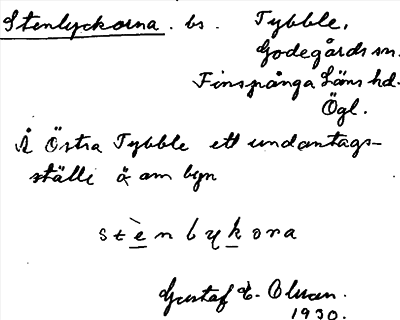 Stenlyckorna. bs. Tybble,
Godegårds sn.
Finspånga Läns hd.
Ögl.
Å Östra Tybble ett undantags-
ställe å am byn
stènlykora
Gustaf E. Olsson.
1930.